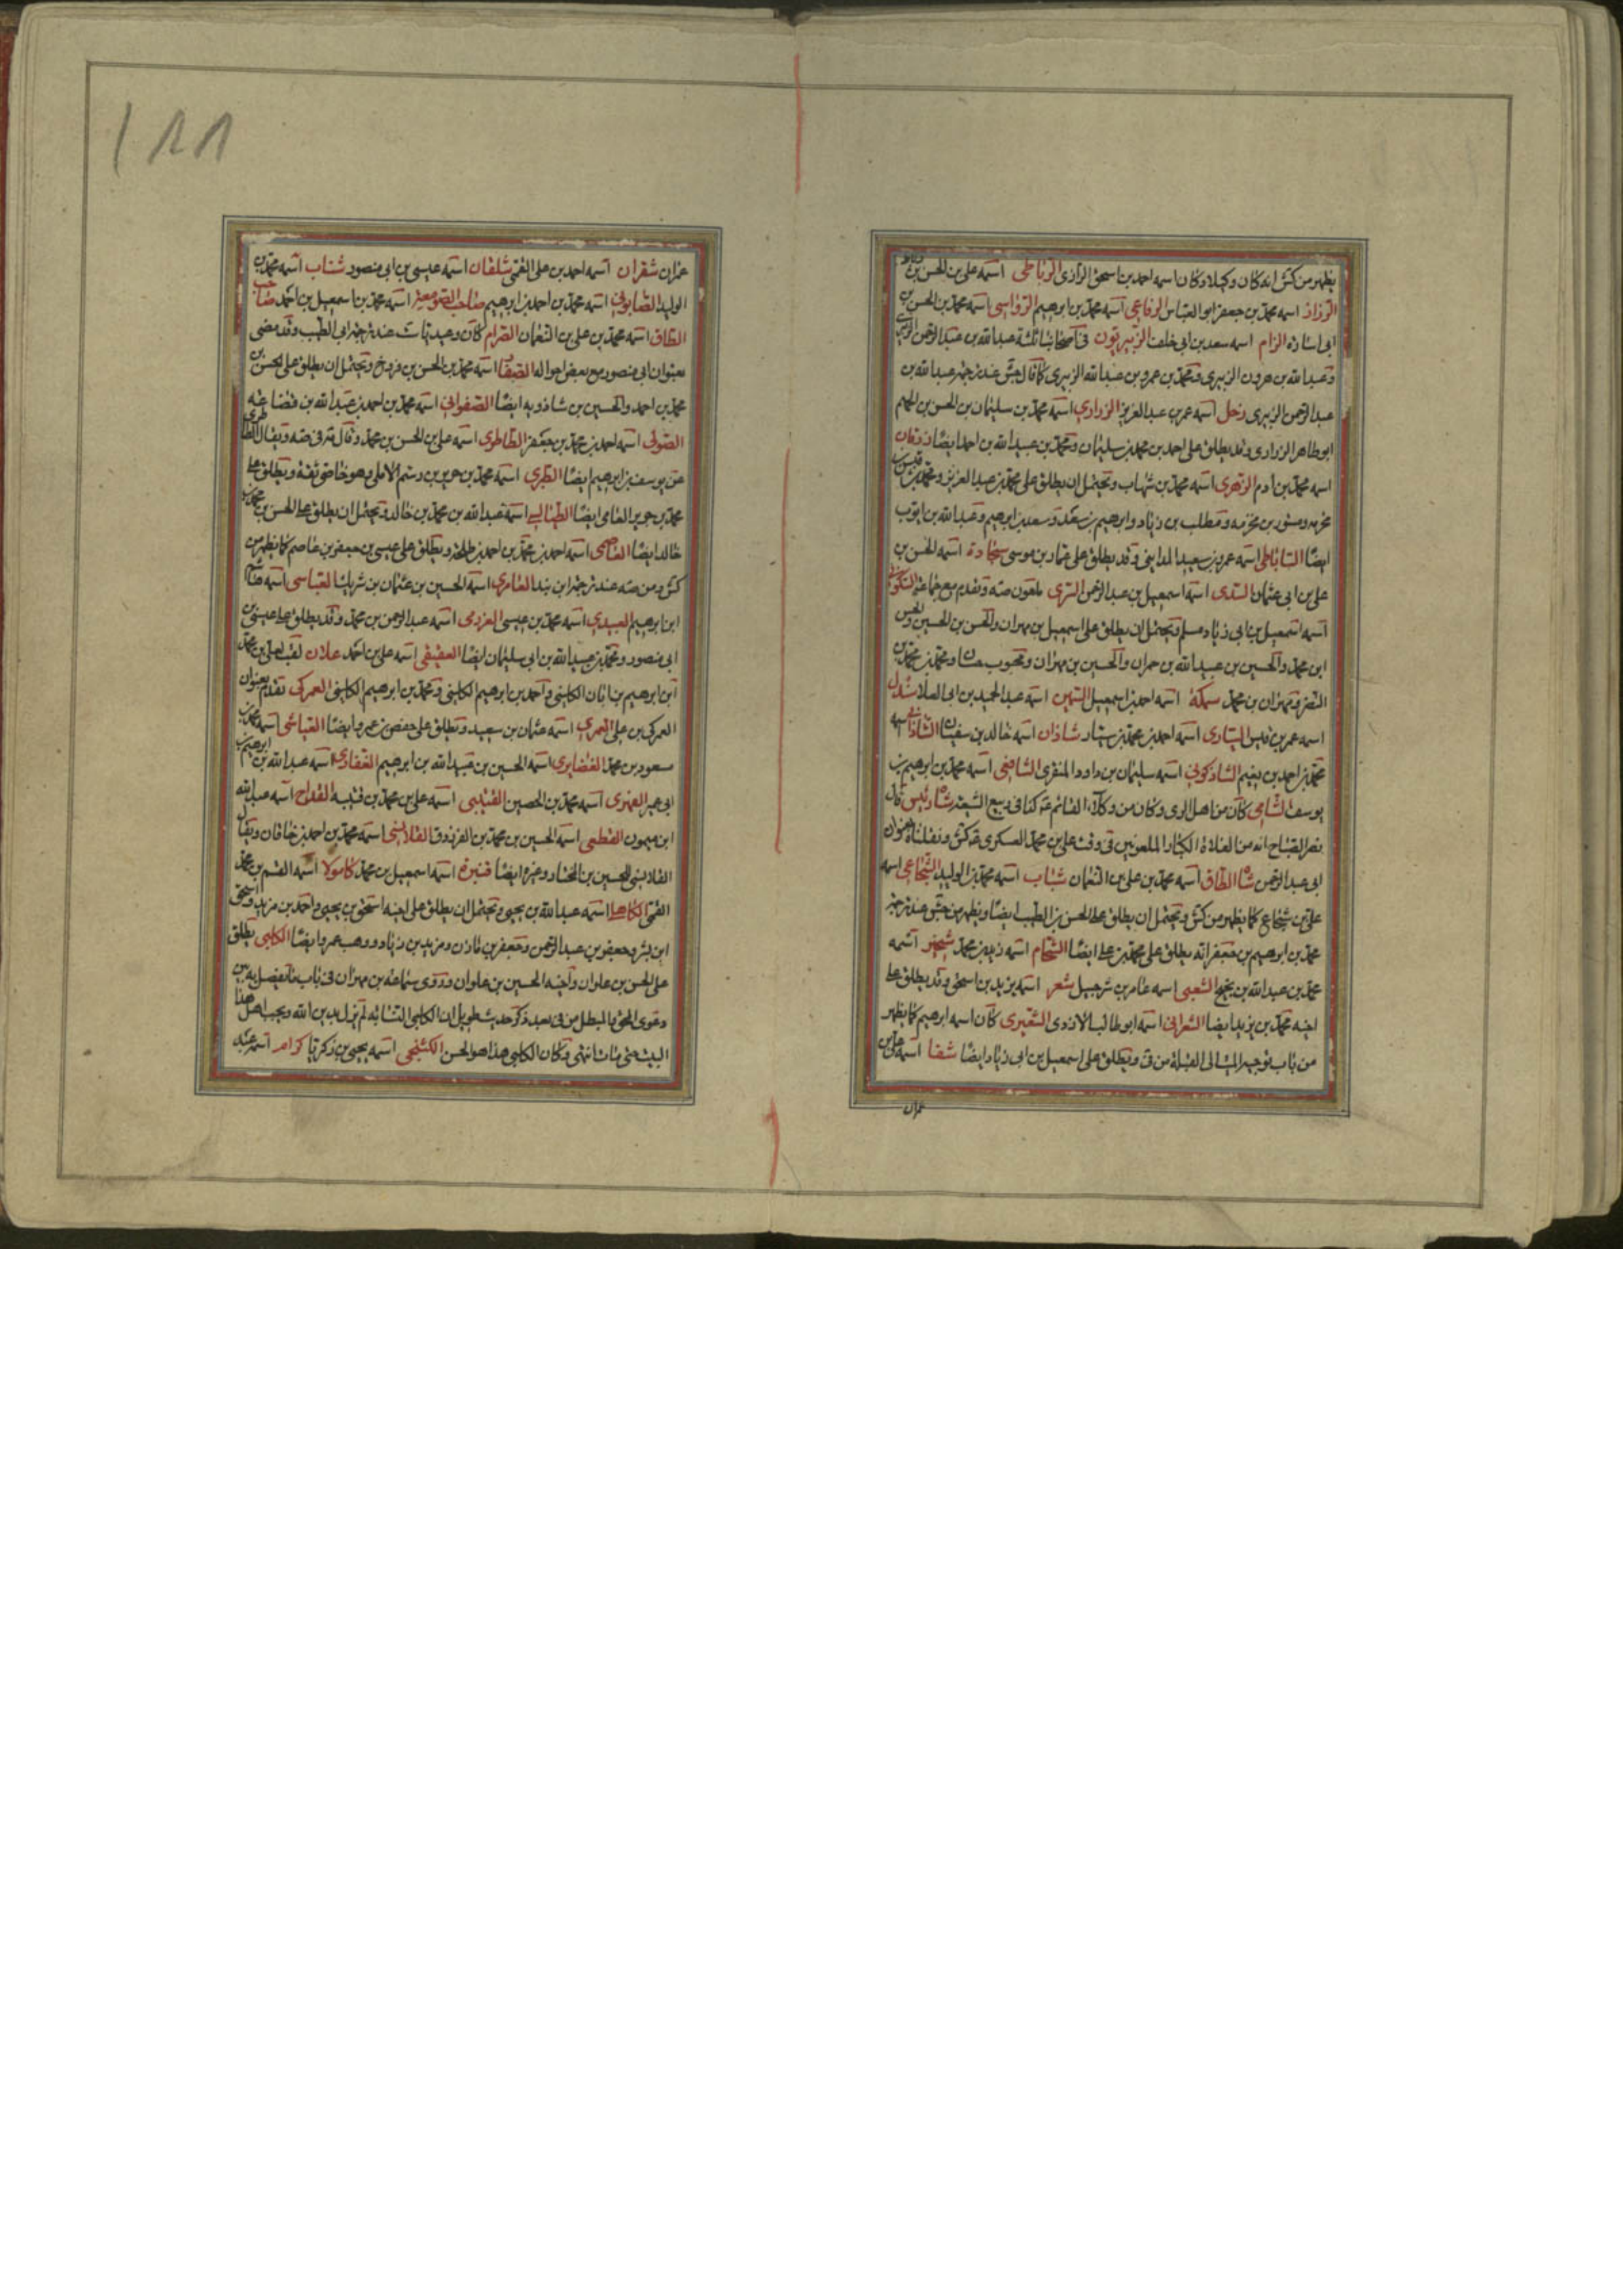 يظهر من كش انه كان وكيلا وكان اسمه احمد بن اسحق الرازى الرباطى اسمه على بن الحسن بن رباط
الرزاز اسمه محمد بن جعفر ابو العباس الرفاعى اسمه محمد بن ابرهيم الرواسى اسمه محمد بن الحسن بن
ابى ساره الزام اسمه سعد بن ابى خلف الزبيريون فى اصحابنا ثلثة عبد الله بن عبد الرحمن الزبيرى
وعبد الله بن هرون الزبيرى ومحمد بن عمرو بن عبد الله الزبيرى كما قال جش عند ترجمة عبد الله بن
عبد الرحمن الزبيرى زحل اسمه عمر بن عبد العزيز الزرارى اسمه محمد بن سليمان بن الحسن بن الجهم
ابو طاهر الزرارى وقد يطلق على احمد بن محمد بن سليمان ومحمد بن عبيد الله بن احمد ايضا زرقان
اسمه محمد بن ادم الزهرى اسمه محمد بن شهاب ويحتمل ان يطلق على محمد بن عبد العزيز ومحمد بن قيس
مخرمه ومسور بن مخرمه ومطلب بن زياد وابرهيم بن سعد وسعد بن ابرهيم وعبد الله بن ايوب
ايضا الساباطى اسمه عمرو بن سعيد المداينى وقد يطلق على عمار بن موسى سجادة اسمه الحسن بن
على بن ابى عثمان السدى اسمه اسمعيل بن عبد الرحمن السرى ملعون صه وتقدم مع جماعة السكونى
اسمه اسمعيل بن ابى زياد مسلم ويحتمل ان يطلق على اسمعيل بن مهران والحسن بن الحسين والحسن
ابن محمد والحسين بن عبيد الله بن حمران والحسين بن مهران ومحبوب بن حسان ومحمد بن محمد بن
النضر ومهران بن محمد سمكة اسمه احمد بن اسمعيل السمين اسمه عبد الحميد بن ابى العلا سندل
اسمه عمر بن قيس السيارى اسمه احمد بن محمد بن سيار شاذان اسمه خالد بن سفيان الشاذانى اسمه
محمد بن احمد بن نعيم الشاذكونى اسمه سليمان بن داود المنقرى الشافعى اسمه محمد بن ابرهيم بن
يوسف الشامى كان من اهل الرى وكان من وكلاء القائم عه كذا فى ربيع الشيعة شاه رئيس قال
نصر الصباح انه من الغلاة الكبار الملعونين فى وقت على بن محمد العسكرى عه كش ونقلناه بعنوان
ابى عبد الرحمن شاه الطاق اسمه محمد بن على بن النعمان شباب اسمه محمد بن الوليد الشجاعى اسمه
على بن شجاع كما يظهر من كش ويحتمل ان يطلق على الحسن بن الطيب ايضا ويظهر من جش عند ترجمة
محمد بن ابرهيم بن جعفر انه يطلق على محمد بن على ايضا الشحام اسمه زيد بن محمد شنير اسمه
محمد بن عبد الله بن نجيح الشعبى اسمه عامر بن شرحبيل شعر اسمه يزيد بن اسحق وقد يطلق على
اخيه محمد بن يزيد ايضا الشعرانى اسمه ابو طالب الازدى الشعيرى كان اسمه ابرهيم كما يظهر
من باب توجيه الميت الى القبلة من فى ويطلق على اسمعيل بن ابى زياد ايضا شفا اسمه على بن
عمران
عمران شقران اسمه احمد بن على القمى شلقان اسمه عيسى بن ابى منصور شنباب اسمه محمد بن
الوليد الصابونى اسمه محمد بن احمد بن ابرهيم صاحب الصومعة اسمه محمد بن اسمعيل بن احمد صاحب
الطاق اسمه محمد بن على بن النعمان الصرام كان وعيد عند ترجمة ابى الطيب وقد مضى
بعنوان ابى منصور مع بعض احواله الصفار اسمه محمد بن الحسن بن فروخ ويحتمل ان يطلق على الحسن بن
محمد بن احمد والحسين بن شاذويه ايضا الصفوانى اسمه محمد بن احمد بن عبد الله بن قضاعه
الصولى اسمه احمد بن محمد بن جعفر الطاطرى اسمه على بن الحسن بن محمد وقال مره فى صه ويقال الطاطرى
عن يوسف بن ابرهيم ايضا الطبرى اسمه محمد بن جرير بن رستم الاملى وهو خاصى ثقة ويطلق على
محمد بن جرير العامى ايضا الطيالسى اسمه عبد الله بن محمد بن خالد ويحتمل ان يطلق على الحسن بن محمد بن
خالد ايضا العاصمى اسمه احمد بن محمد بن احمد بن طلحة ويطلق على عيسى بن جعفر بن عاصم كما يظهر من
كش ومن صه عند ترجمة ابن بند العامرى اسمه الحسين بن عثمان بن شريك العباسى اسمه هشام
ابن ابرهيم العبيدى اسمه محمد بن عيسى العزرمى اسمه عبد الرحمن بن محمد وقد يطلق على عيسى بن
ابى منصور ومحمد بن عبيد الله بن ابى سليمان ايضا العقيقى اسمه على بن احمد علان لقب لعلى بن محمد
ابن ابرهيم بن ابان الكلينى واحمد بن ابرهيم الكلينى ومحمد بن ابرهيم الكلينى العمركى تقدم بعنوان
العمركى بن على العمرى اسمه عثمان بن سعيد ويطلق على حفص بن عمرو ايضا العياشى اسمه محمد بن
مسعود بن محمد الغضايرى اسمه الحسين بن عبيد الله بن ابرهيم الغفارى اسمه عبد الله بن ابرهيم بن
ابى عمير الفهرى اسمه محمد بن الحصين القتيبى اسمه على بن محمد بن قتيبه القداح اسمه عبد الله
ابن ميمون القطعى اسمه الحسين بن محمد بن الفرزدق القلانسى اسمه محمد بن احمد بن خاقان ويقال
القلانسى للحسين بن المختار وغيره ايضا قنبرة اسمه اسمعيل بن محمد كاسولا اسمه القسم بن محمد
القمى الكاهلى اسمه عبد الله بن يحيى ويحتمل ان يطلق على اخيه اسحق بن يحيى واحمد بن مزيد واسحق
ابن بشر وجعفر بن عبد الرحمن وجعفر بن مازن ومزيد بن زياد ووهب بن عمرو ايضا الكلبى يطلق
على الحسن بن علوان واخيه الحسين بن علوان وروى سماعه بن مهران فى باب ما يفصل به بين
دعوى المحق والمبطل من فى بعد ذكر حديث طويل ان الكلبى النسابه لم يزل يدين الله بحب اهل هذا
البيت حتى مات انتهى وكان الكلبى هذا هو الحسن الكنجى اسمه يحيى بن زكريا كرام اسمه عبد